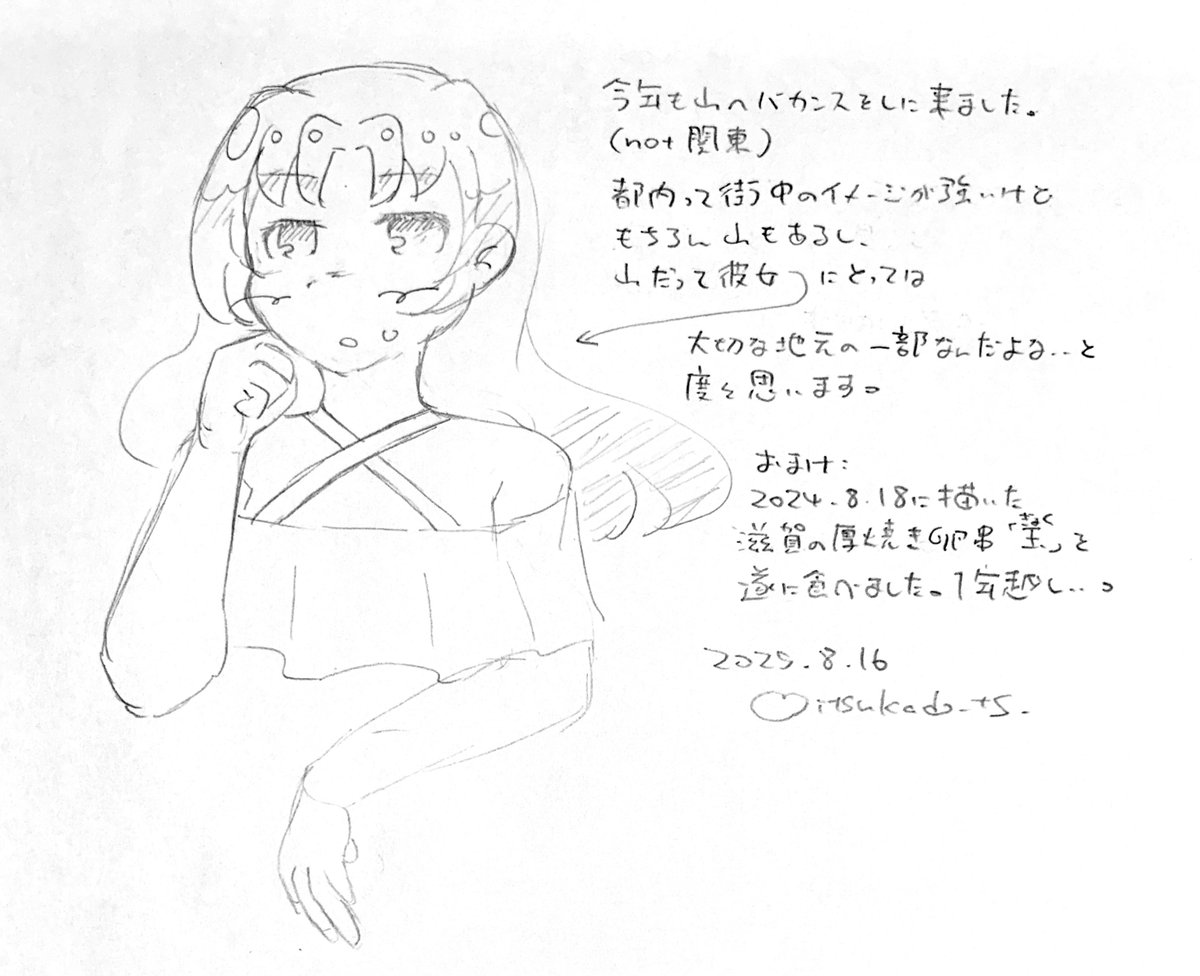 今年も山へバカンスをしに来ました。
(not 関東)
都内って街中のイメージが強いけど
もちろん山もあるし、
山だって彼女にとっては
大切な地元の一部なんだよな..と
度々思います。
おまけ:
2024.8.18に描いた
滋賀の厚焼き卵串「
」を
遂に食べました。1年越し...。
2025.8.16
itsukado_ts.